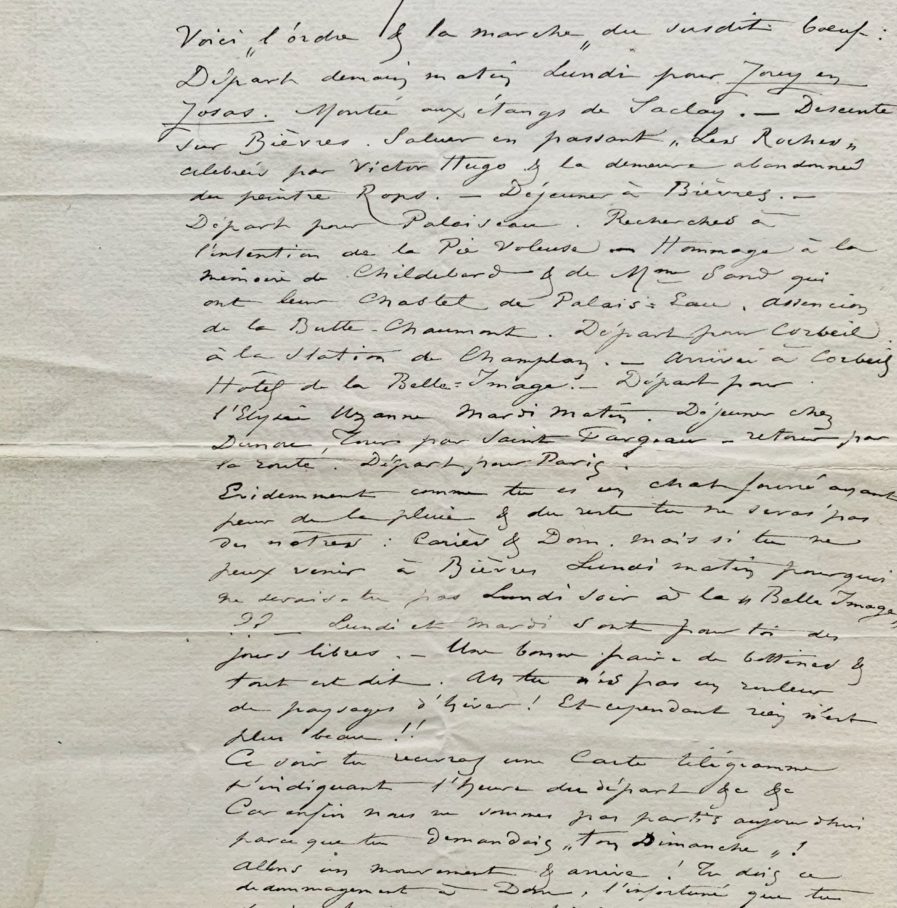 Voici „l'ordre & la marche„ du susdit bœuf :
Départ demain matin Lundi pour Jouy en
Josas. Montée aux étangs de Saclay. — Descente
sur Bièvres. Saluer en passant „Les Roches„
célébrées par Victor Hugo & la demeure abandonnée
du peintre Rops. — Déjeuner à Bièvres. —
Départ pour Palaiseau. Recherches à
l'intention de la Pie Voleuse — Hommage à la
mémoire de Childebard & de Mme Sand qui
ont leur Chastel de Palais=Eau. Assencion
de la Butte-Chaumont. Départ pour Corbeil
à la Station de Champlan. — Arrivée à Corbeil
Hôtel de la Belle=Image. — Départ pour
l'Elysée Uzanne Mardi matin. Déjeuner chez
Tours par Saint Fargeau — retour par
la route. Départ pour Paris.
Evidemment comme tu es un chat fourré ayant
peur de la pluie & du reste tu ne seras pas
des nôtres : Cariès & Dom. mais si tu ne
peux venir à Bièvres Lundi matin pourquoi
ne serais-tu pas Lundi soir à la „Belle Image„
?? — Lundi et Mardi sont pour toi des
jours libres. — Une bonne paire de bottines &
tout est dit. Ah tu n'es pas un rouleur
de paysages d'hiver ! Et cependant rien n'est
plus beau !!
Ce soir tu recevras une Carte télégramme
t'indiquant l'heure du départ &c &c
Car enfin nous ne sommes pas partis aujourd'hui
parce que tu demandais „ton Dimanche„ !
Allons un mouvement & arrive ! Tu dois ce
dédommagement à Dom, l'infortuné que tu